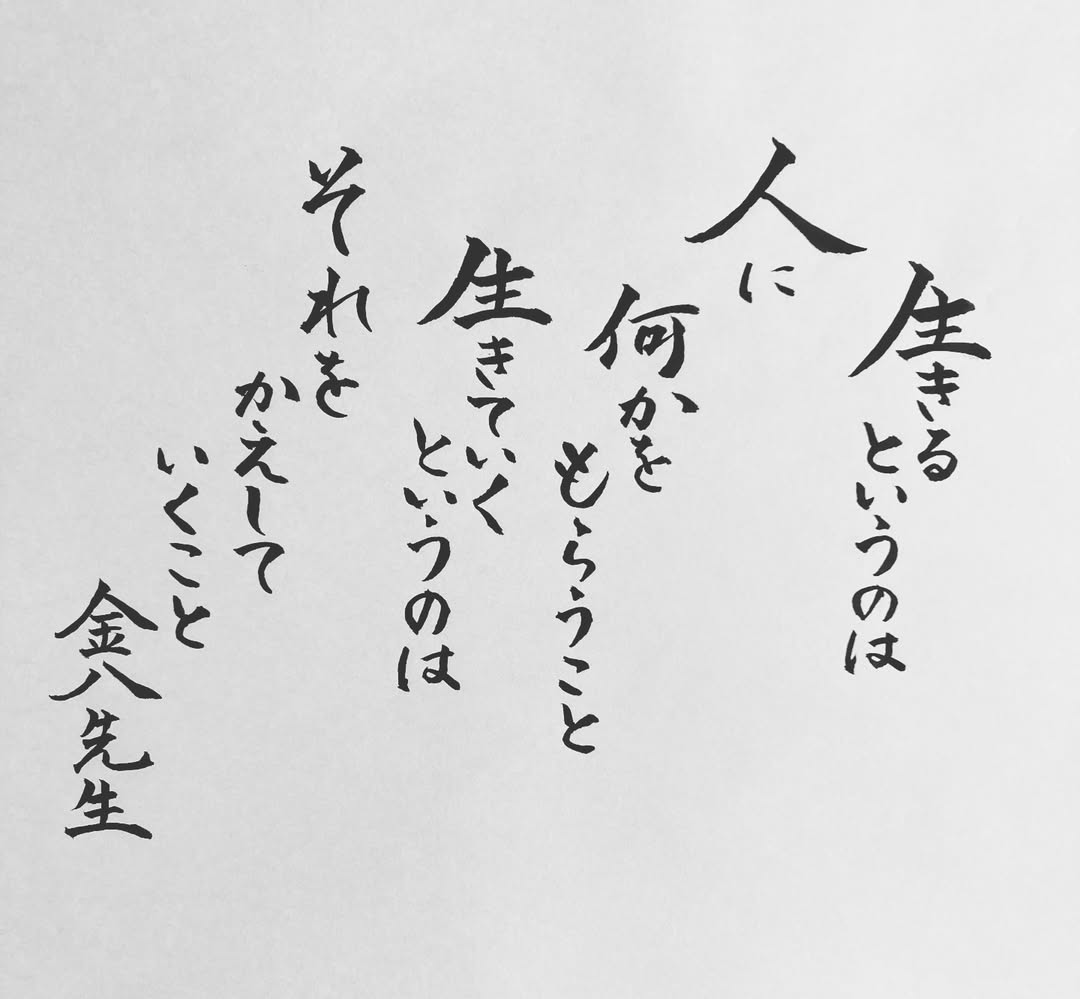 生きる
というのは
人に
何かを
もらうこと
生きていく
というのは
それを
かえして
いくこと
金八先生